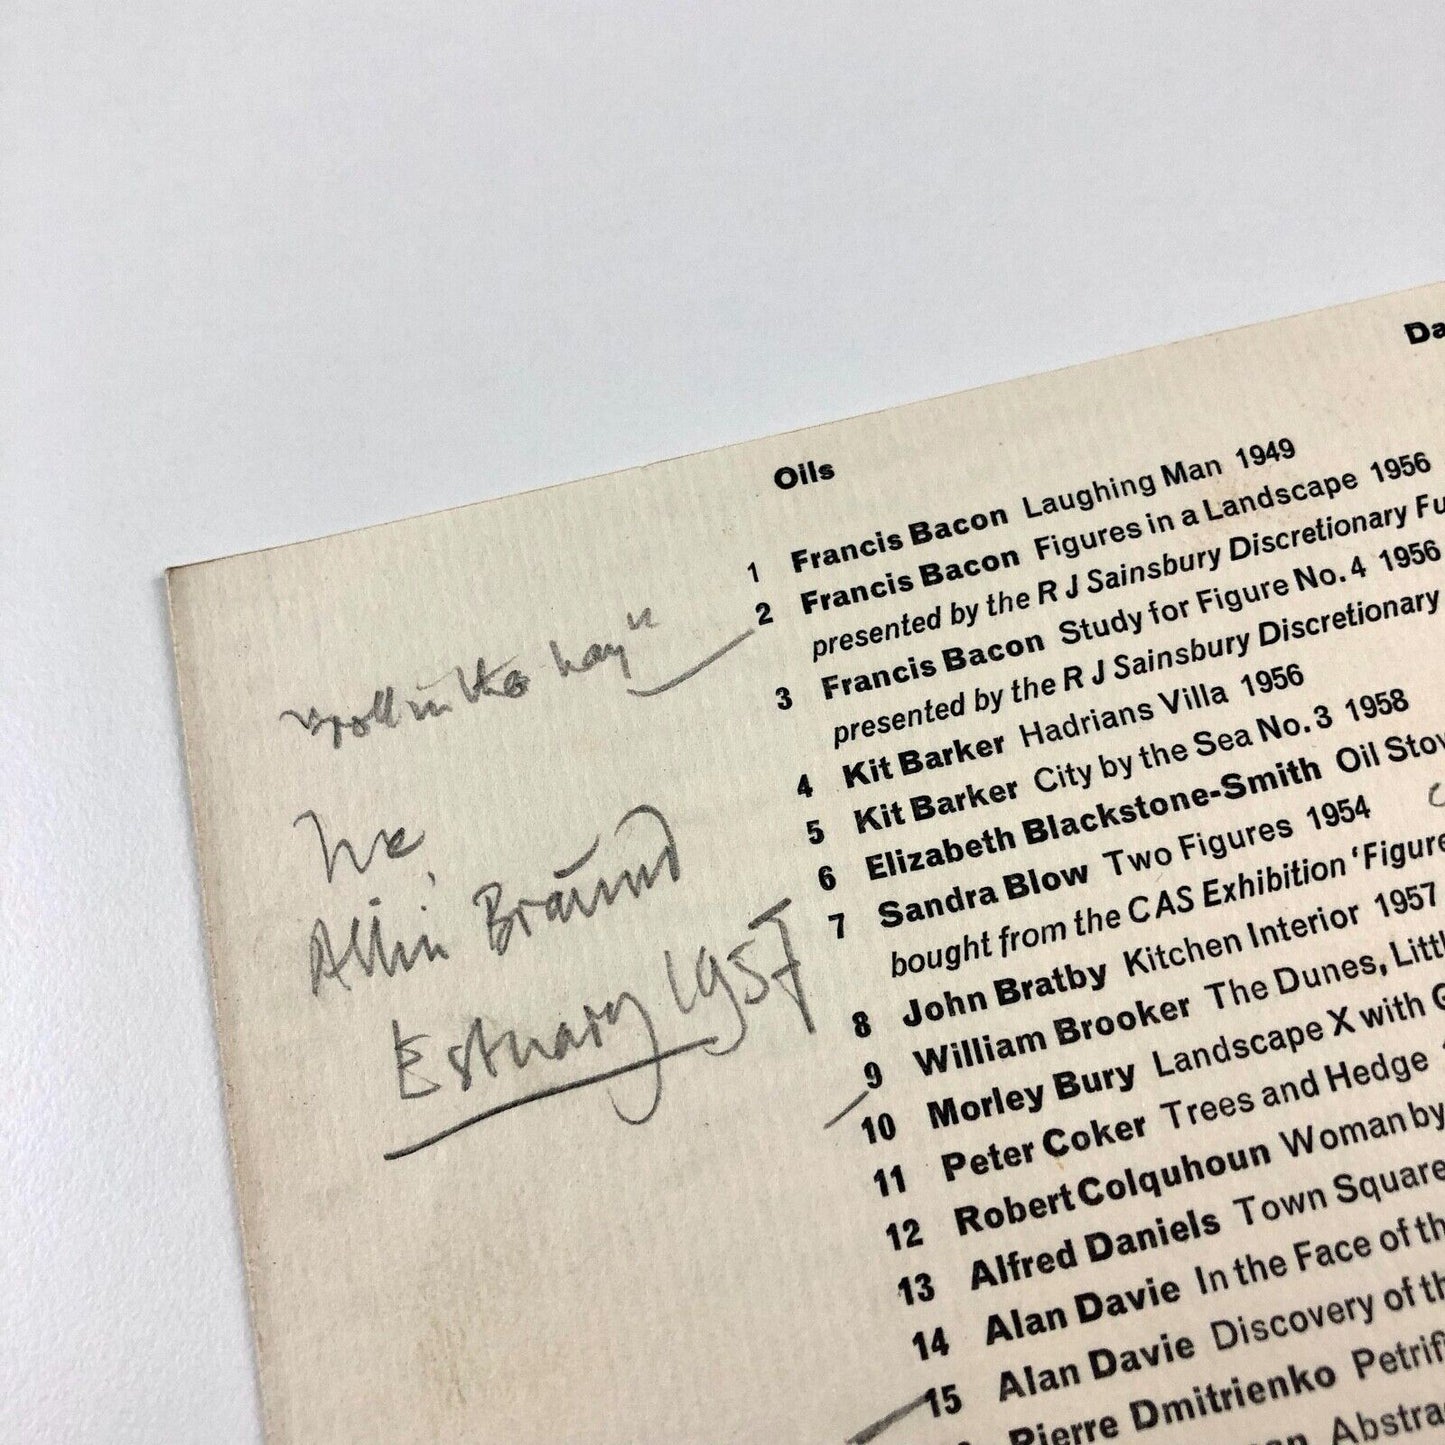 Da
Oils
1 Francis Bacon Laughing Man 1949
2 Francis Bacon Figures in a Landscape 1956
presented by the R J Sainsbury Discretionary Fu
3 Francis Bacon Study for Figure No. 4 1956
presented by the R J Sainsbury Discretionary
4 Kit Barker Hadrians Villa 1956
5 Kit Barker City by the Sea No. 3 1958
6 Elizabeth Blackstone-Smith Oil Stov
7 Sandra Blow Two Figures 1954
bought from the CAS Exhibition 'Figure
8 John Bratby Kitchen Interior 1957
9 William Brooker The Dunes, Littl
10 Morley Bury Landscape X with G
11 Peter Coker Trees and Hedge 1
12 Robert Colquhoun Woman by
13 Alfred Daniels Town Square
14 Alan Davie In the Face of th
15 Alan Davie Discovery of th
Pierre Dmitrienko Petrif
Abstra
"roll in the hay"
Allin Braund
Estuary 1957